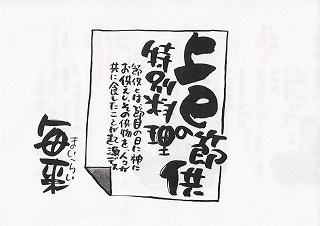 上巳の節供
特別料理
節供とは、節目の日に神に
お供えし、その供物を、人々が
共に食したことが起源です
毎来
まいらい